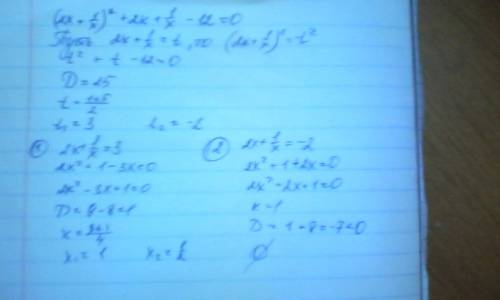 (2x + 1/x)² + 2x + 1/x - 12 = 0
Пусть 2x + 1/x = t, то (2x + 1/x)² = t²
t² + t - 12 = 0
D = 25
t = 1±5/2
t₁ = 3 t₂ = -2
① 2x + 1/x = 3
2x² + 1 - 3x = 0
2x² - 3x + 1 = 0
D = 9 - 8 = 1
x = 3±1/4
x₁ = 1 x₂ = 1/2
② 2x + 1/x = -2
2x² + 1 + 2x = 0
2x² - 2x + 1 = 0
k = 1
D = 1 - 8 = -7 < 0
∅